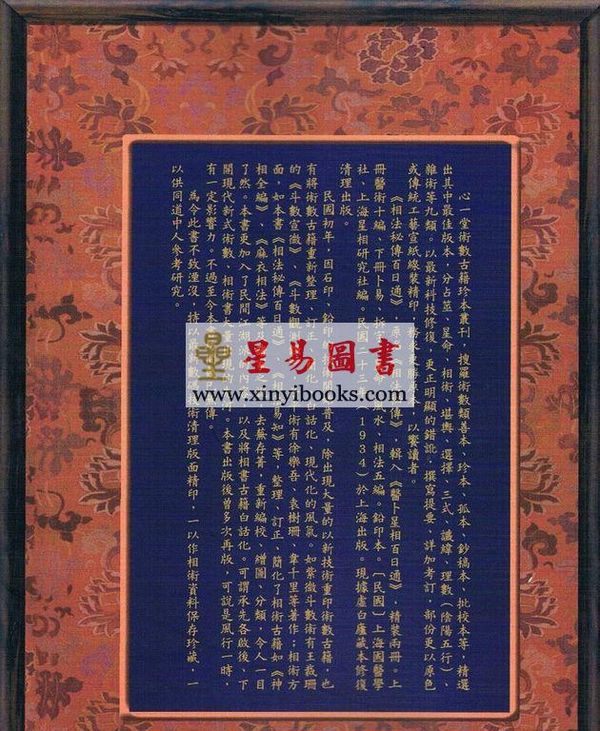 心一堂術數古籍珍本叢刊，搜羅術數類善本、珍本、孤本、鈔稿本、批校本等，精選
出其中最佳版本，分占筮、星命、相術、堪輿、選擇、三式、讖緯、理數（陰陽五行）、
雜術等九類。以最新科技修復，更正明顯的錯訛，撰寫提要，詳加考訂，部份更以原色
或傳統工藝宣紙線裝精印，務求更勝原 以饗讀者。
《相法秘傳百日通》，原 《相法 傳》，輯入《醫卜星相百日通》，精裝兩冊。上
冊醫術十編、下冊卜易、拆字 命 風水、相法五編。鉛印本。〔民國〕上海國醫學
社、上海星相研究社編。民國 十三 （1934）於上海出版。現據虛白廬藏本修復
清理出版。
民國初年，因石印、鉛印 技術開 普及，除出現大量的以新技術重印術數古籍，也
有將術數古籍重新整理、訂正、簡化、白話化、現代化的風氣。如紫微斗數術有王裁珊
的《斗數宣微》、《斗數觀測 術有徐樂吾、袁樹珊、韋千里等著作，相術方
面，如本書《相法秘傳百日通》、《相 易知》等，整理、訂正、簡化了相術古籍如《神
相全編》、《麻衣相法》等 之 去蕪存菁，重新編校、繪圖、分類，令人一目
了然。本書更加入了民間 江湖 的內 以及將相書古籍白話化。可謂承先啟後，下
開現代新式術數、相術書大量 現 行。本書出版後曾多次再版，可說是風行一時，
有一定影響力。不過至今本 傳。
為令此書不致湮沒，特以最新數碼技術清理版面精印，一以作相術資料保存珍藏，一
以供同道中人參考研究。
星易圖書
www.xinyibooks.com